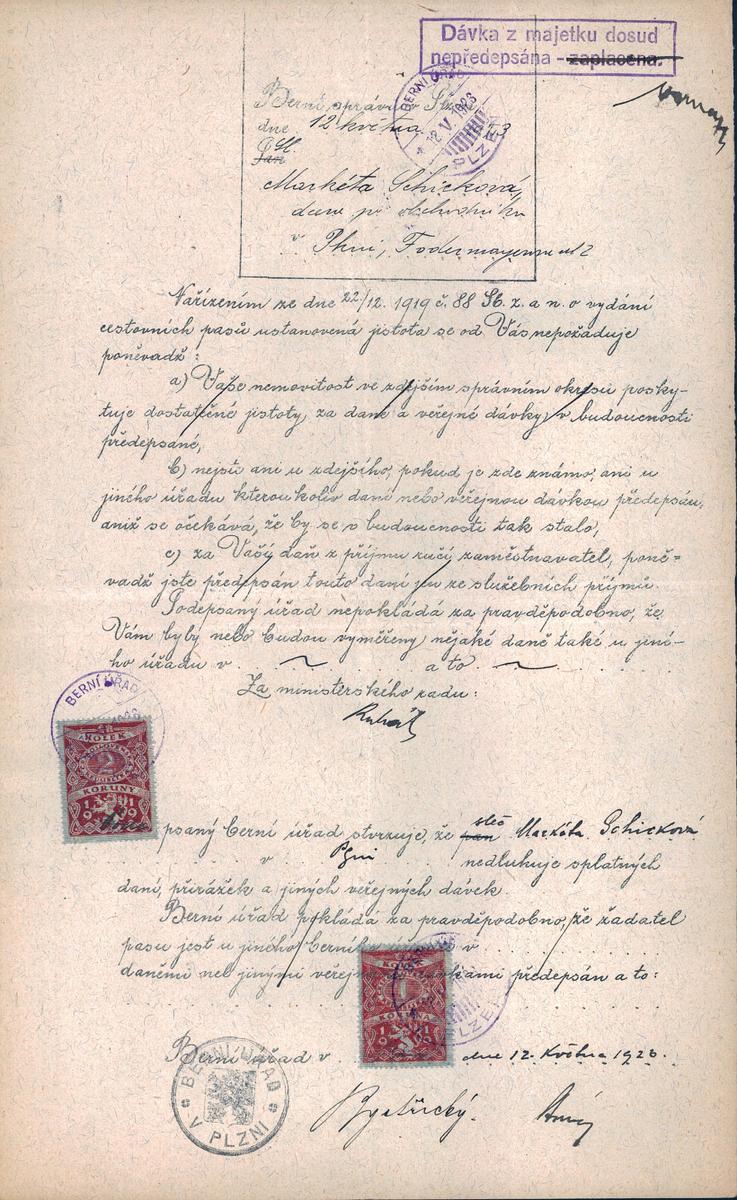 Dávka z majetku dosud
nepředepsána - zaplacena.
Berní správa
BERNÍ ÚŘAD
12. V. 1923
PLZEŇ
dne 12 května 23
Markéta Schicková,
v Plzni,
Nařízením ze dne 22/12. 1919 č. 88 Sb. z. a n. o vydání
cestovních pasů ustanovená jistota se od Vás nepožaduje
poněvadž:
a) Vaše nemovitost ve zdejším správním okresu posky-
tuje dostatečné jistoty, za dane a veřejné dávky v budoucnosti
předepsané,
b) nejste ani u zdejšího, pokud je zde známo, ani u
jiného úřadu kteroukoliv daní nebo veřejnou dávkou předepsán,
aniž se očekává, že by se v budoucnosti tak stalo,
c) za Vaši daň z příjmu ručí zaměstnavatel, poně=
vadž jste předepsán touto daní jen ze služebních příjmů.
Podepsaný úřad nepokládá za pravděpodobno, že
Vám byly nebo budou vyměřeny nějaké daně také u jiné-
ho úřadu v . . . ~ . . . a to . ~ . . .
Za ministerského radu:
BERNÍ ÚŘAD
KOLEK
2
KORUNY
1919
psaný berní úřad stvrzuje, že pan slč Markéta Schicková
v Plzni nedlukuje splatných
daní, přirážek a jiných veřejných dávek.
Berní úřad pokládá za pravděpodobno, že žadatel
pasu jest u jiného berního v
daněmi neb jinými veřejnými dávkami předepsán a to:
1
KORUNA
1919
PLZEŇ
Berní úřad v dne 12. Května 1923.
BERNÍ ÚŘAD
V PLZNI
Bystřický.